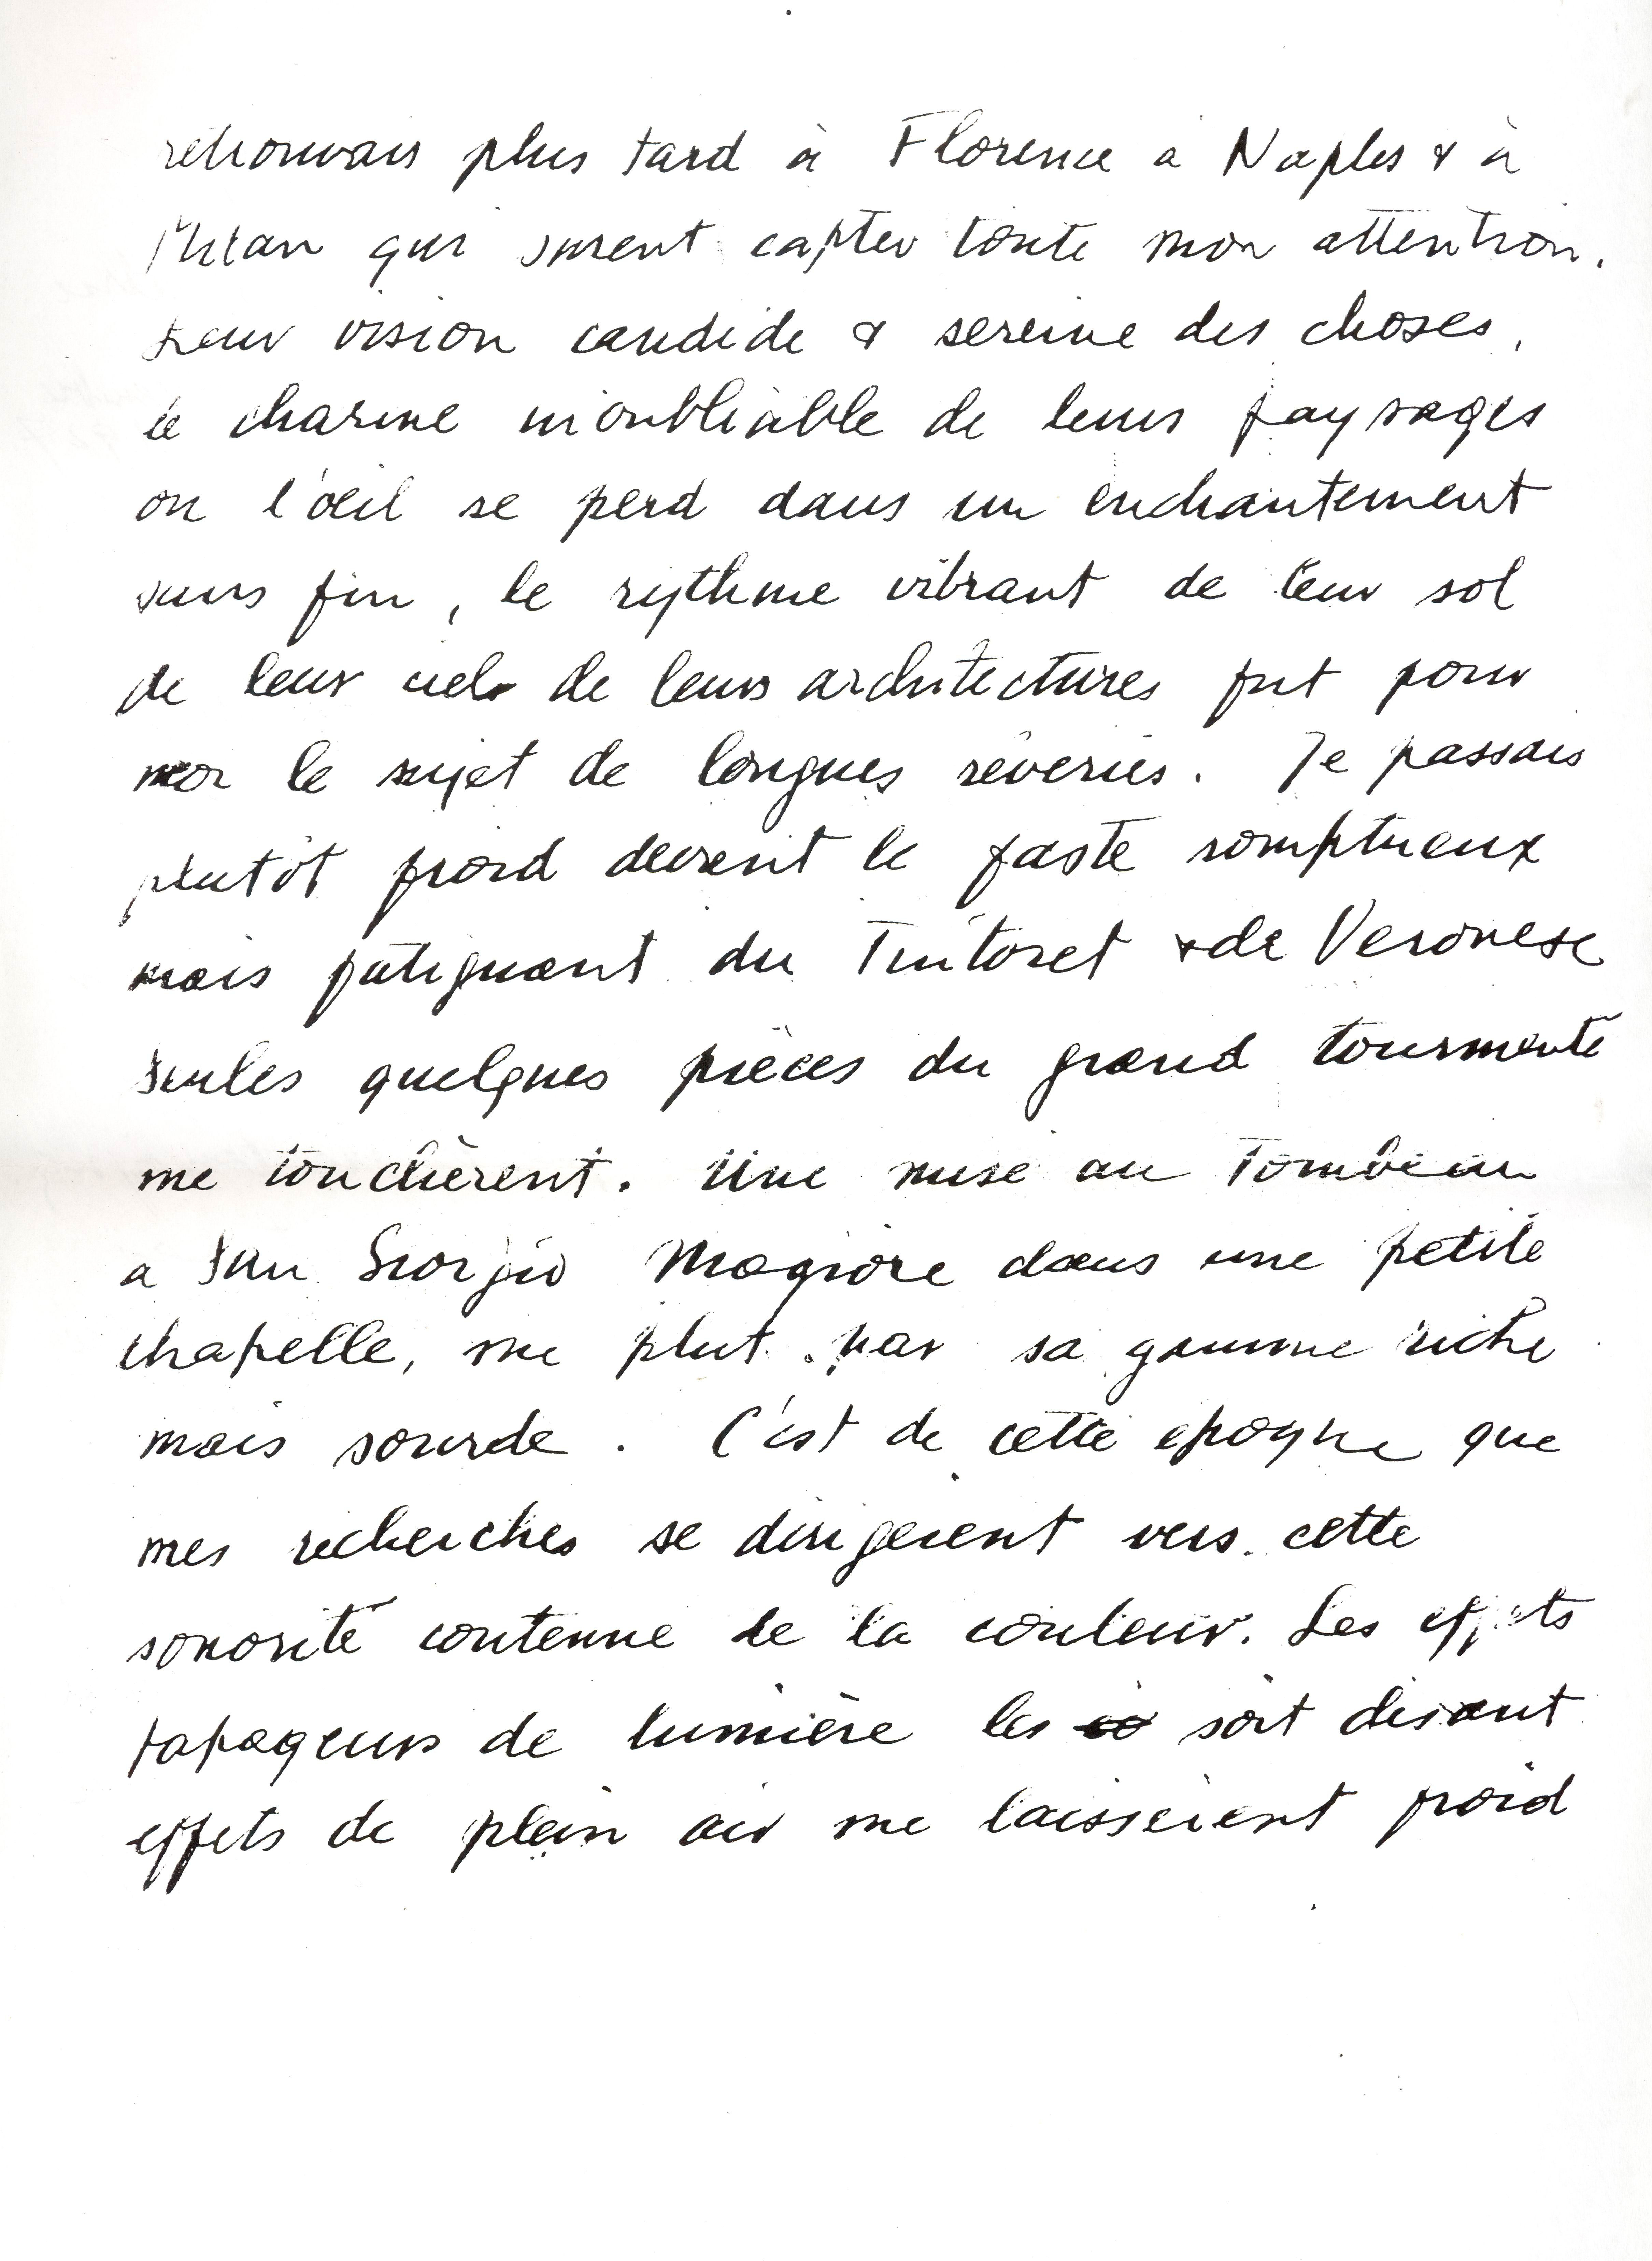 retrouvais plus tard à Florence a Naples & à
Milan qui surent capter toute mon attention.
Leur vision candide & sereine des choses,
le charme inoubliable de leurs paysages
ou l'œil se perd dans un enchantement
sans fin, le rythme vibrant de leur sol
de leur ciel de leurs architectures fut pour
moi le sujet de longues rêveries. Je passais
plutôt froid devant le faste somptueux
mais fatiguant du Tintoret & de Veronese
Seules quelques pièces du grand tourmenté
me touchèrent. Une mise au Tombeau
a San Giorgio Magiore dans une petite
chapelle, me plut par sa gamme riche
mais sourde. C'est de cette epoque que
mes recherches se dirigerent vers cette
sonorité contenue de la couleur. Les effets
tapageurs de lumière les soit disant
effets de plein air me laissèrent froid